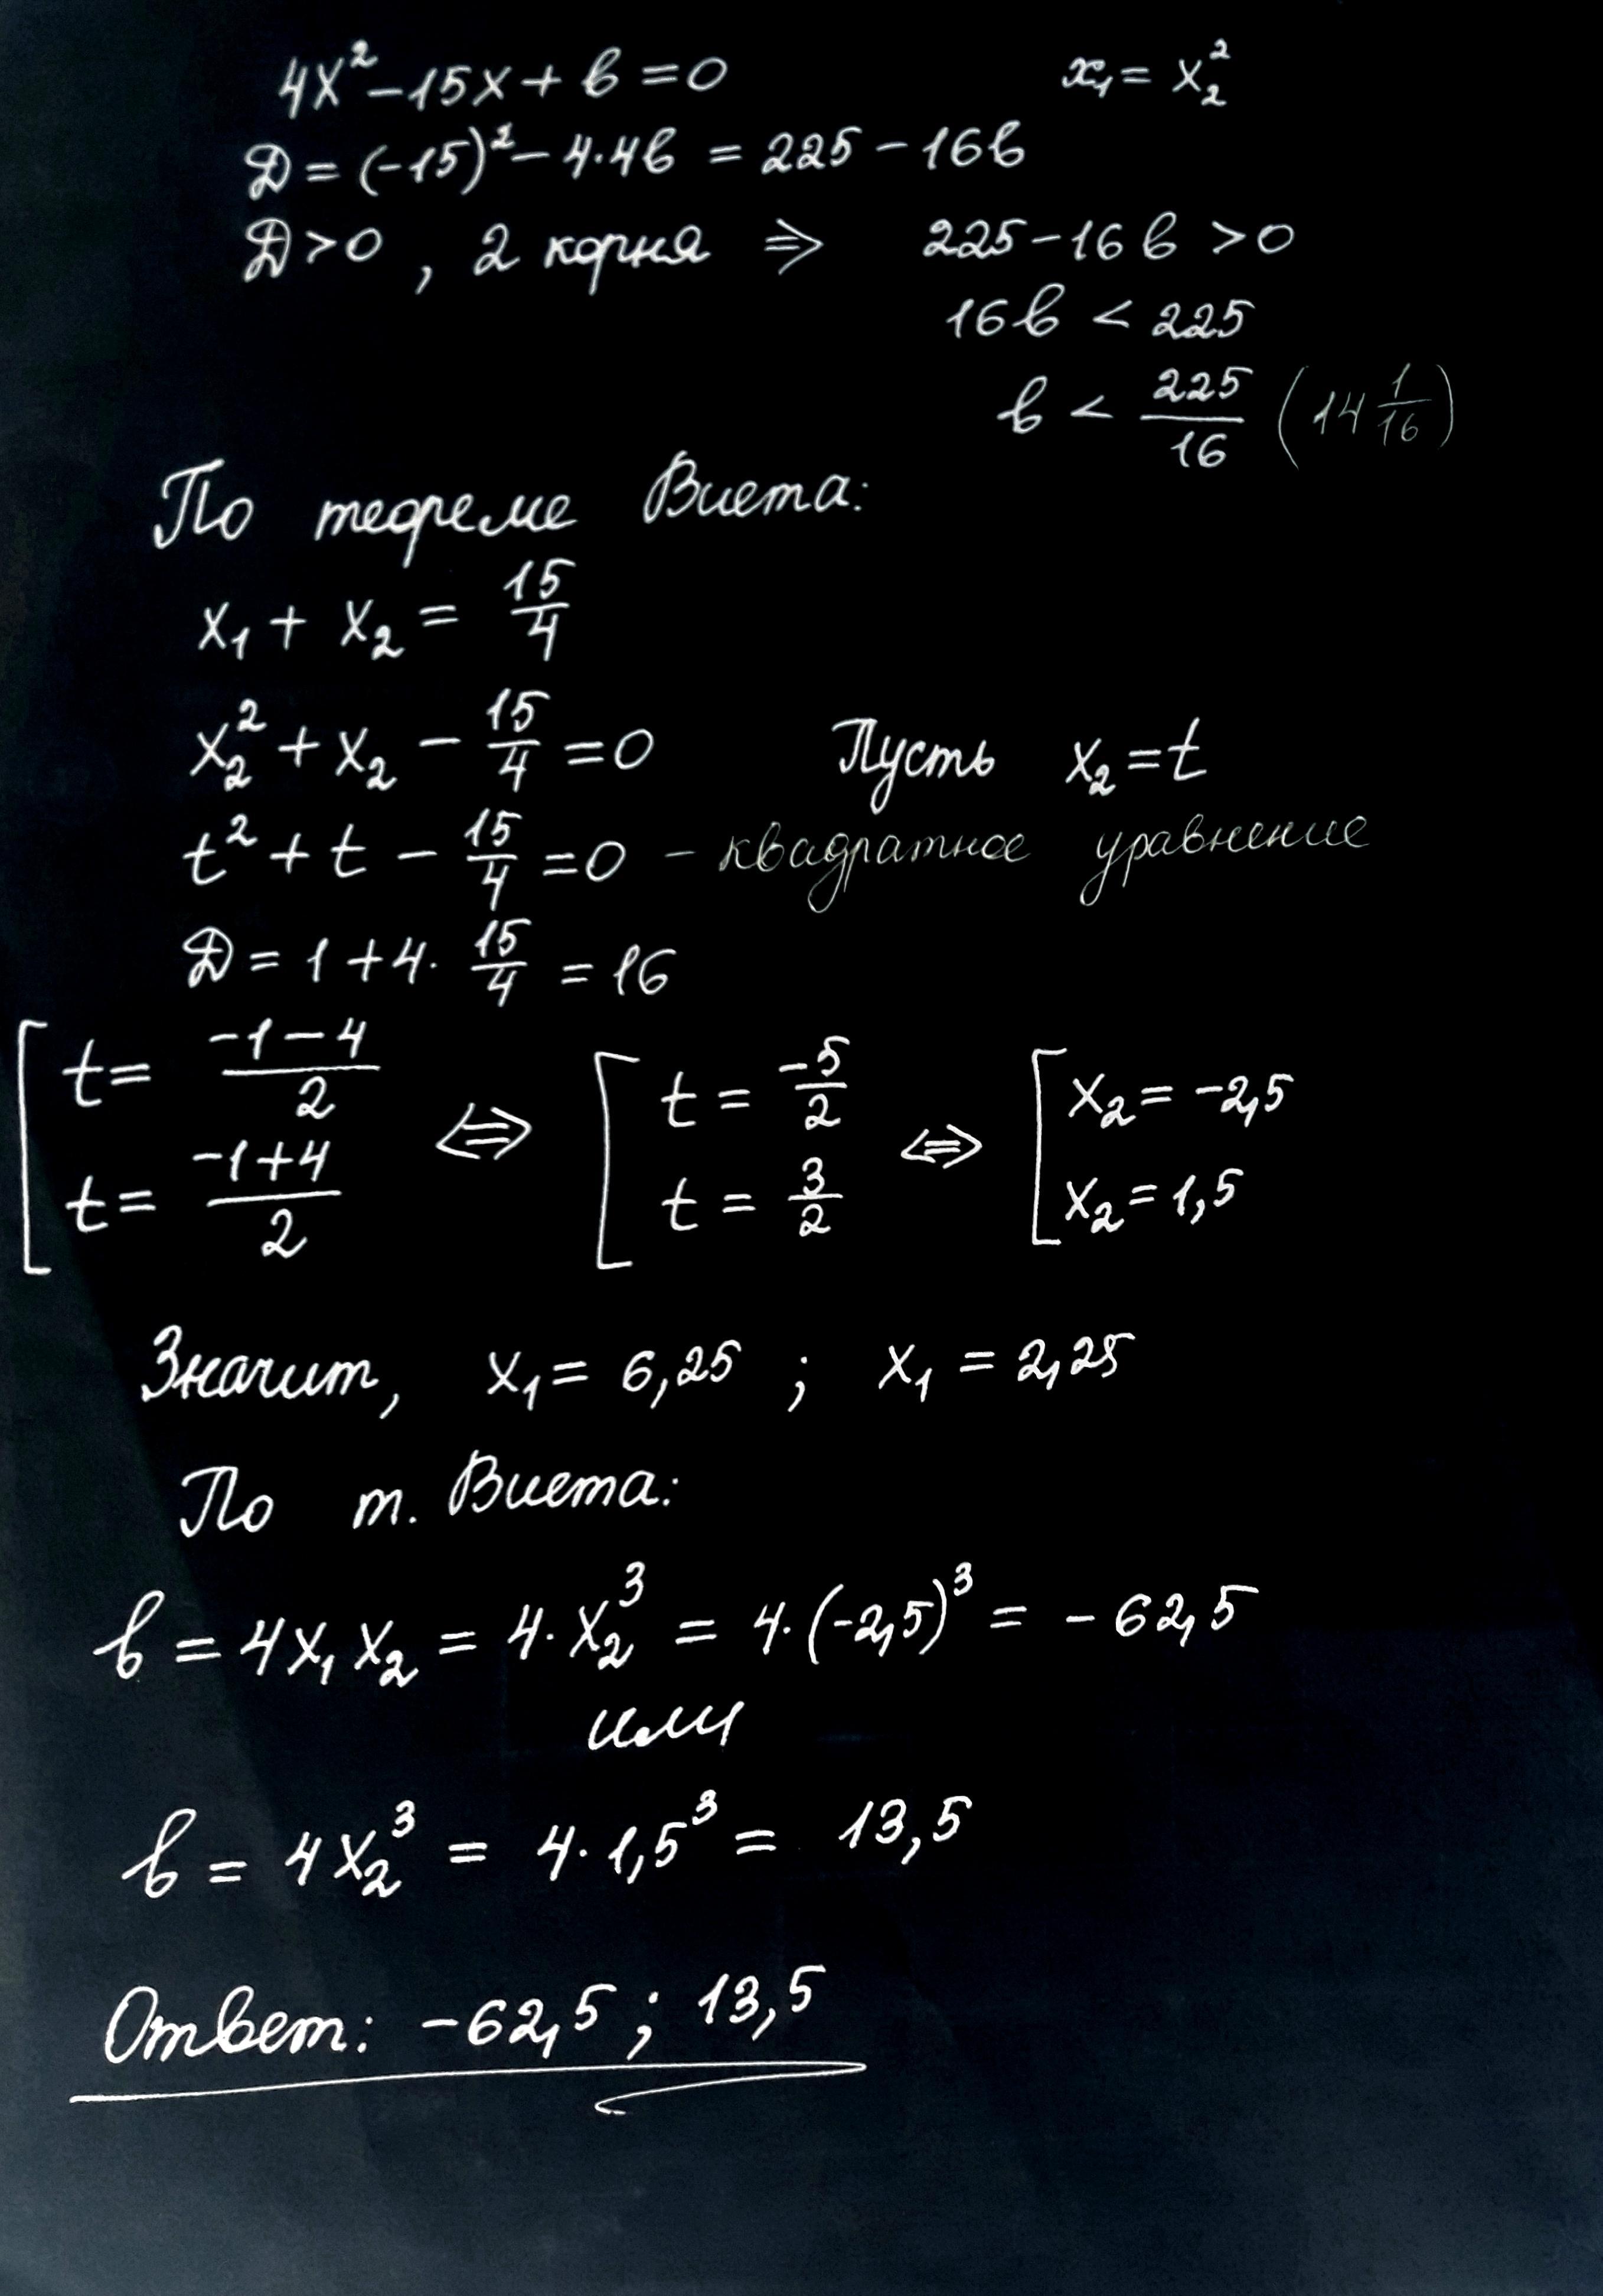 4x² - 15x + b = 0    x₁ = x₂²
D = (-15)² - 4·4b = 225 - 16b
D > 0, 2 корня ⇒ 225 - 16b > 0
16b < 225
b < 225/16 (14 1/16)
По теореме Виета:
x₁ + x₂ = 15/4
x₂² + x₂ - 15/4 = 0    Пусть x₂ = t
t² + t - 15/4 = 0 - квадратное уравнение
D = 1 + 4· 15/4 = 16
[ t = (-1-4)/2 ⇔ [ t = -5/2 ⇔ [ x₂ = -2,5
t = (-1+4)/2    t = 3/2    x₂ = 1,5
Значит, x₁ = 6,25 ; x₁ = 2,25
По т. Виета:
b = 4x₁x₂ = 4·x₂³ = 4·(-2,5)³ = -62,5
или
b = 4x₂³ = 4·1,5³ = 13,5
Ответ: -62,5 ; 13,5